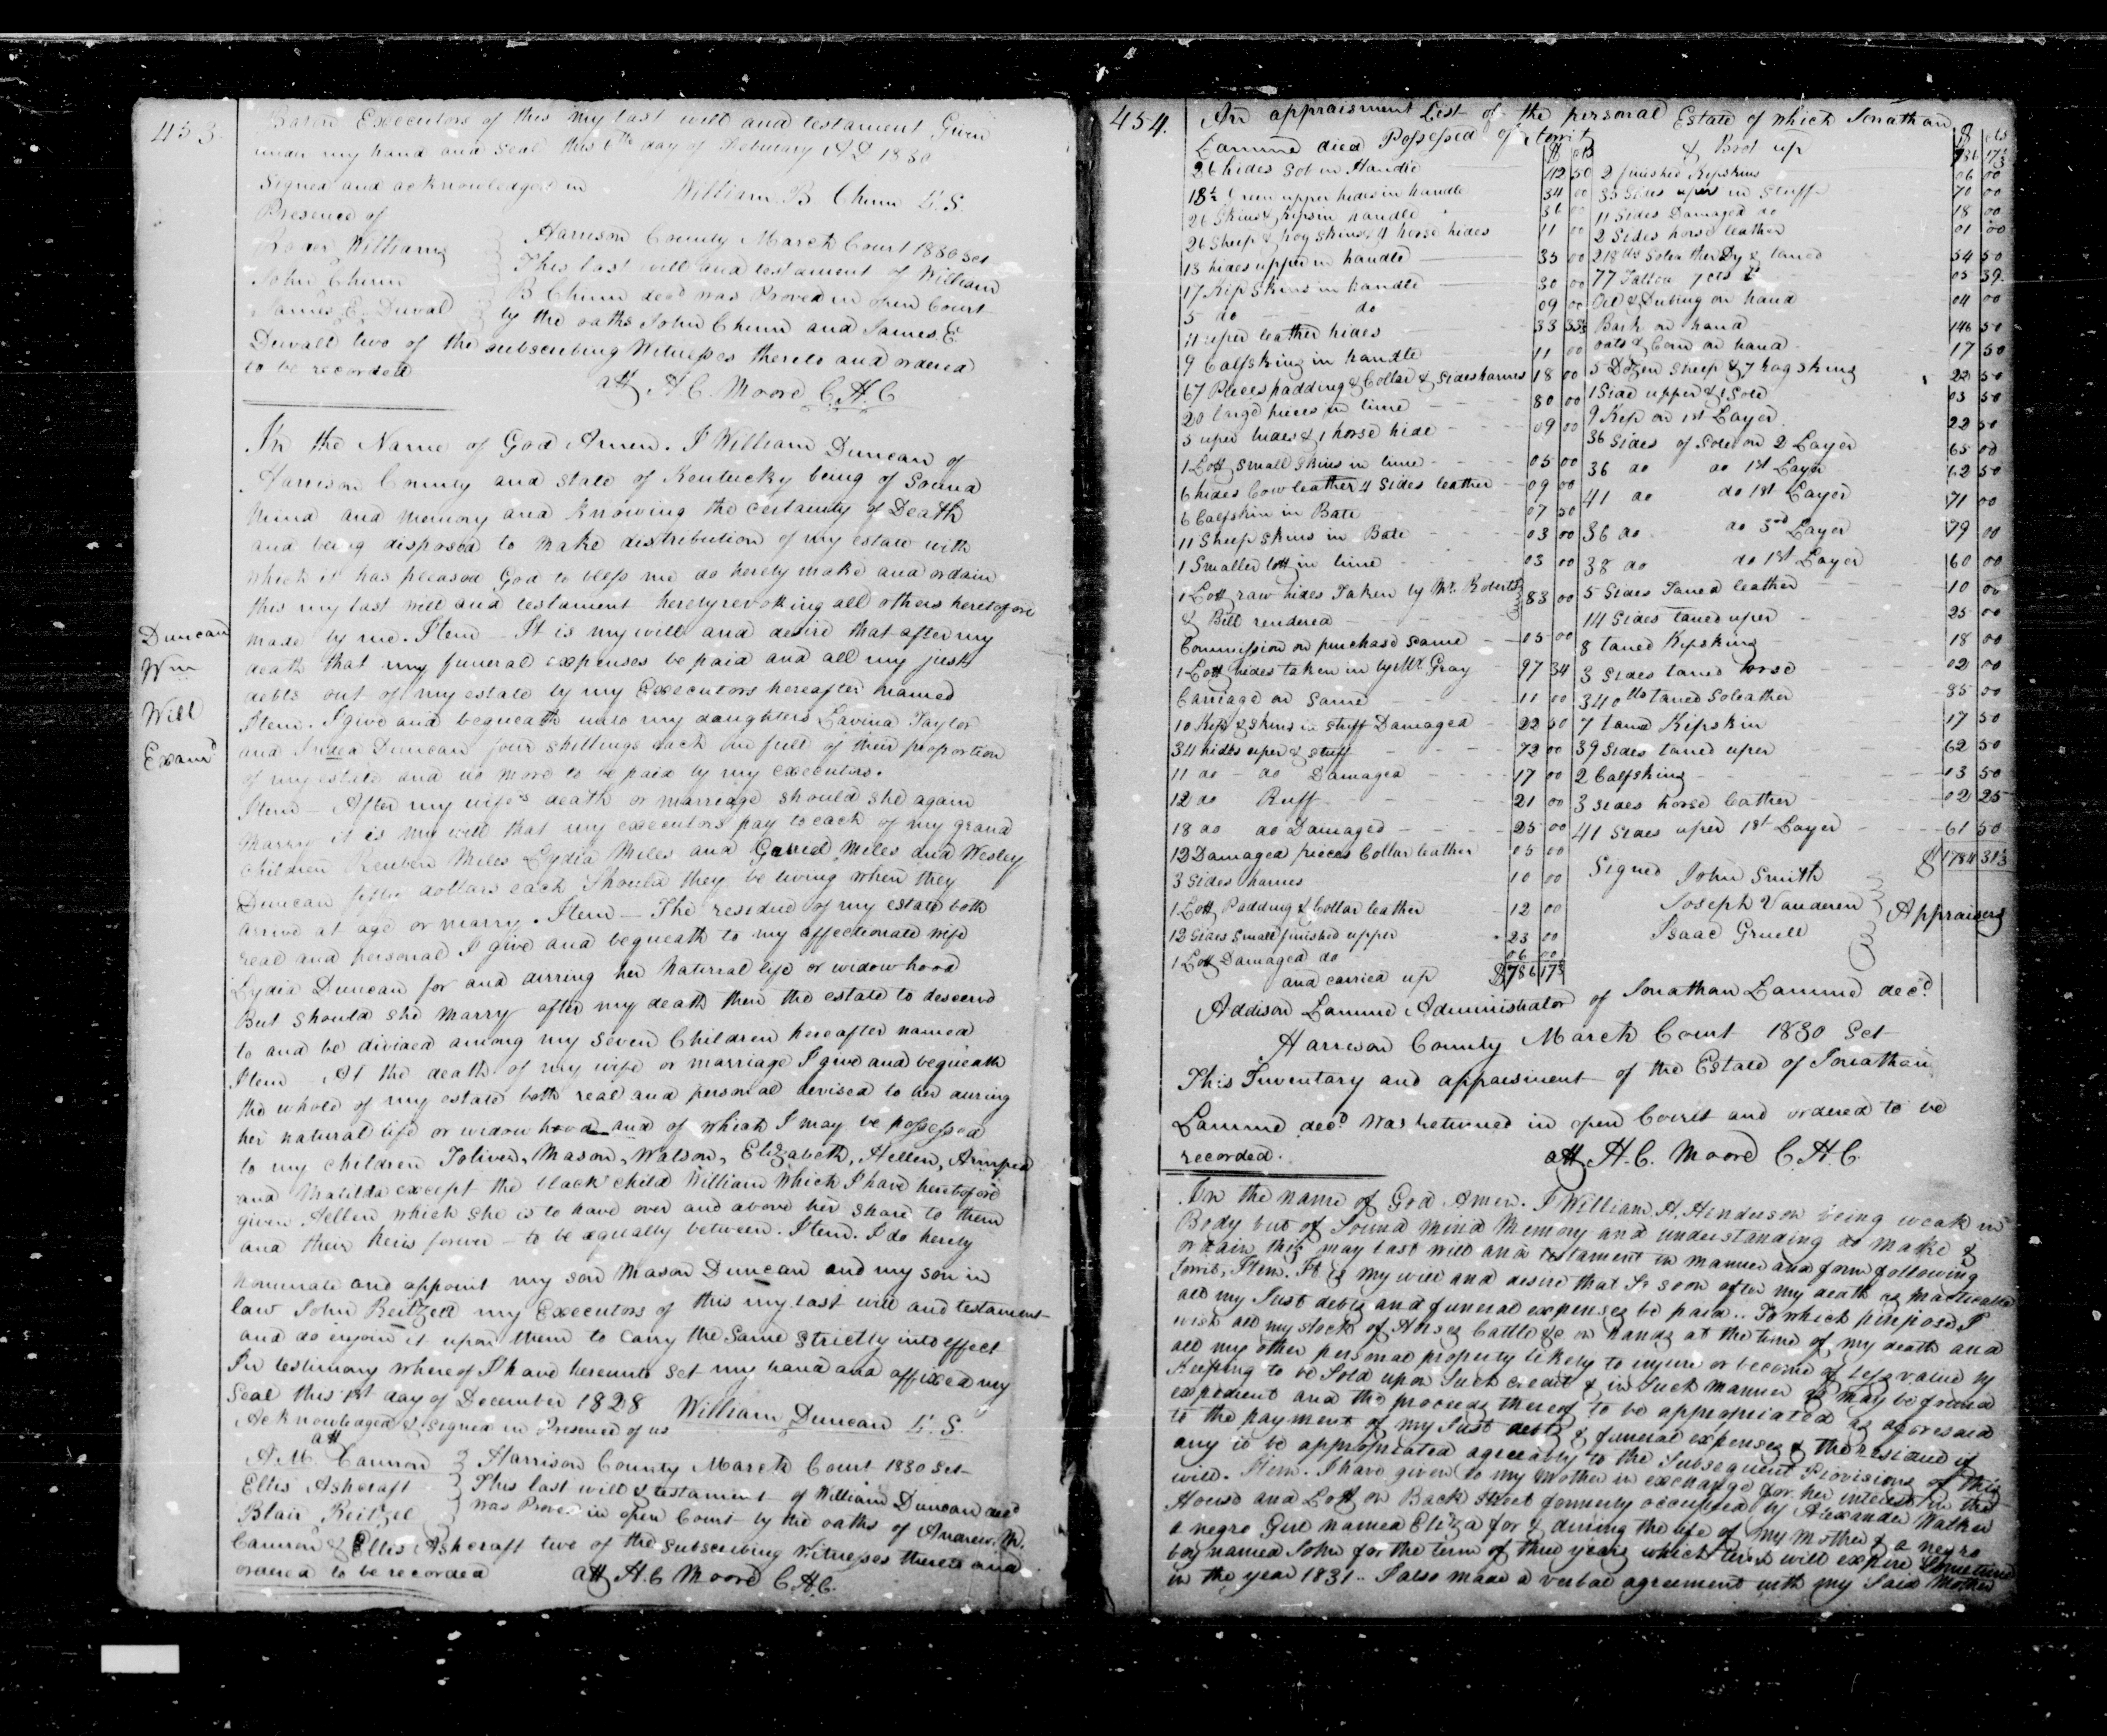 453.
Baton Executors of this my last will and testament Given
under my hand and seal this 6th day of February AD 1830
Signed and acknowledged in William B. Chinn L.S.
Presence of
Roger Williams
John Chinn
James E. Duval
Harrison County March Court 1830 Sct
This last will and testament of William
B Chinn decd was Proved in open Court
by the oaths John Chinn and James E
Duvall two of the subscribing Witnesses thereto and ordered
to be recorded
att H C. Moore C.H.C
Duncan
Wm
Will
Examd
In the Name of God Amen. I William Duncan of
Harrison County and state of Kentucky being of Sound
mind and memory and knowing the certainty of Death
and being disposed to make distribution of my estate with
which it has pleased God to bless me do hereby make and ordain
this my last will and testament hereby revoking all others heretofore
made by me. Item - It is my will and desire that after my
death that my funeral expenses be paid and all my just
debts out of my estate by my Executors hereafter named
Item. I give and bequeath unto my daughters Lavina Taylor
and Duncan four shillings each in full of their proportion
of my estate and no more to be paid by my executors.
Item - After my wife's death or marriage should she again
marry it is my will that my executors pay to each of my grand
children Reuben Miles Lydia Miles and Miles and Wesley
Duncan fifty dollars each Should they be living when they
arrive at age or marry. Item - The residue of my estate both
real and personal I give and bequeath to my affectionate wife
Lydia Duncan for and durring her natural life or widow hood
But should she marry after my death then the estate to descend
to and be divided among my seven Children hereafter named
Item - At the death of my wife or marriage I give and bequeath
the whole of my estate both real and personal devised to her during
her natural life or widow hood and of which I may be possessed
to my children Toliver, Mason, Watson, Elizabeth, Hellen,
and Matilda except the black child William which I have heretofore
given Hellen which she is to have over and above her share to them
and their heirs forever - to be equally between. Item. I do hereby
nominate and appoint my son Mason Duncan and my son in
law John Reitzell my Executors of this my last will and testament
and do enjoin it upon them to carry the same strictly into effect
In testimony whereof I have hereunto set my hand and affixed my
Seal this 1st day of December 1828 William Duncan L.S.
Acknowledged & signed in Presence of us
att
A. M. Cannon
Ellis Ashcraft
Blair Reitzel
Harrison County March Court 1830 Sct
This last will & testament of William Duncan decd
was Proved in open Court by the oaths of Andrew M.
Cannon & Ellis Ashcraft two of the subscribing witnesses thereto and
ordered to be recorded att H. C Moore C H C.
454.
An appraisment List of the personal Estate of which Jonathan
Lamme died Possessed of towit
$ cts
26 hides Sol in Handle 112 50
18½ Green upper hides in handle 34 00
26 Skins & Kips in handle 36 00
26 Sheep & hog skins, 4 horse hides 11 00
13 hides upper in handle 35 00
17 Kip Skins in handle 30 00
5 do do 09 00
11 uper leather hides 33 33⅓
9 Calfskins in handle 11 00
67 Pieces padding & Collar & sides harness 18 00
20 large pieces in lime 80 00
5 uper hides & 1 horse hide 09 00
1 Lott small skins in lime 05 00
6 hides Cow leather 4 Sides leather 09 00
6 Calfskin in Bate 07 50
11 Sheep Skins in Bate 03 00
1 Smaller lott in lime 03 00
1 Lott raw hides Taken by Mr. Roberts
& Bill rendered 83 00
Commission on purchase same 05 00
1 Lott hides taken in by Mr. Gray 97 34
Carriage on Same 11 00
10 Kips & skins in stuff Damaged 22 50
34 hides uper & stuff 72 00
11 do do Damaged 17 00
12 do Ruff 21 00
18 do do Damaged 25 00
12 Damaged pieces Collar leather 03 00
3 Sides harnes 10 00
1 Lott Padding & Collar leather 12 00
12 Sides small finished upper 23 00
1 Lott Damaged do 06 00
and carried up $786 17⅓
$ cts
& Brot up 786 17⅓
2 finished Kipskins 06 00
35 Sides uper in Stuff 70 00
11 Sides Damaged do 18 00
2 Sides horse leather 01 00
218 lbs Sole leather Dry & taned 54 50
77 Tallow 7 cts 05 39.
Oil & Dubing on hand 04 00
Bark on hand 146 50
oats & Corn on hand 17 50
5 Dozen Sheep & 7 hog skins 22 50
1 Side upper & 1 Sole 03 50
9 Kip on 1st Layer 22 50
36 Sides of Sole on 2 Layer 65 00
36 do do 1st Layer 62 50
41 do do 1st Layer 71 00
36 do do 3rd Layer 79 00
38 do do 1st Layer 60 00
5 Sides Taned leather 10 00
14 Sides taned uper 25 00
8 taned Kipskins 18 00
3 Sides taned horse 02 00
340 lbs taned Soleather 85 00
7 taned Kipskin 17 50
39 Sides taned uper 62 50
2 Calfskins 13 50
3 sides horse leather 02 25
41 Sides uper 1st Layer 61 50
$1784 31⅓
Signed John Smith
Joseph Vanderen
Isaac Gruell
Appraisers
Addison Lamme Administrator of Jonathan Lamme decd.
Harrison County March Court 1830 Sct
This Inventory and appraisment of the Estate of Jonathan
Lamme decd was returned in open Court and ordered to be
recorded.
att H. C. Moore C H. C.
In the name of God Amen. I William A. Henderson being weak in
Body but of Sound mind Memory and understanding do make &
ordain this may last will and testament in manner and form following
towit, Item. It is my will and desire that so soon after my death as practicable
all my Just debts and funeral expenses be paid.. To which purpose I
wish all my stock of Horses Cattle &c on hands at the time of my death and
all my other personal property likely to injure or become of less value by
Keeping to be Sold upon Such credit & in Such manner as may be found
expedient and the proceeds thereof to be appropriated as aforesaid
to the payment of my Just debts & funeral expenses & the residue if
any to be appropriated agreeably to the Subsequent Provisions of this
will. Item. I have given to my Mother in exchange for her interest in the
House and Lott on Back Street formerly occupied by Alexander Walker
a negro Girl named Eliza for & during the life of my mother & a negro
boy named John for the term of three years which term will expire Sometime
in the year 1831.. I also made a verbal agreement with my Said Mother